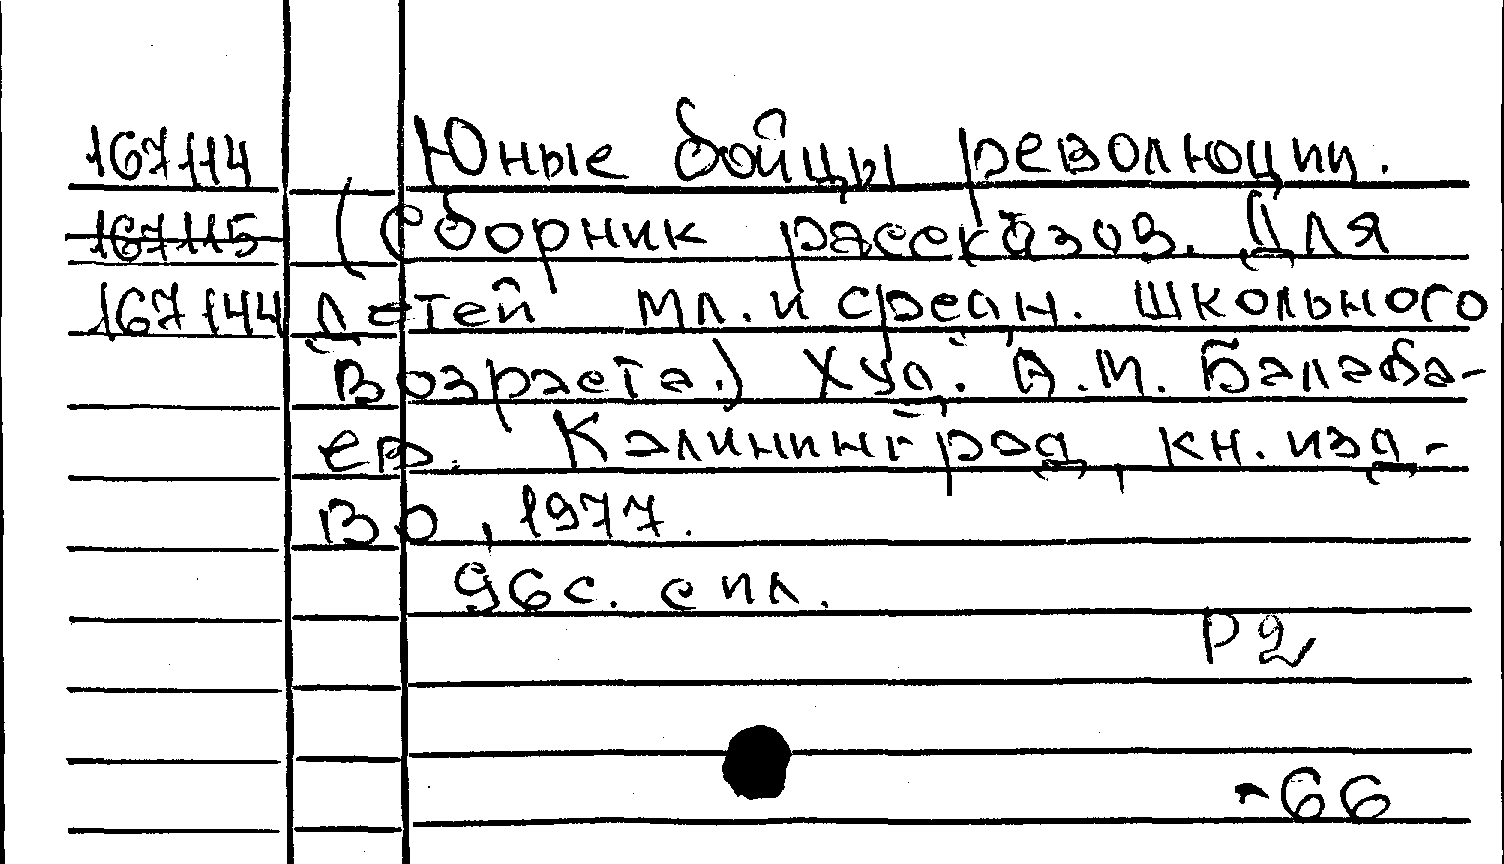 167114 Юные бойцы революции.
167115 (Сборник рассказов. Для
167144 детей мл. и средн. школьного
возраста.) Худ. А.М. Балаба-
ев. Калининград, кн. изд-
во, 1977.
96с. с ил.
Р2
-66